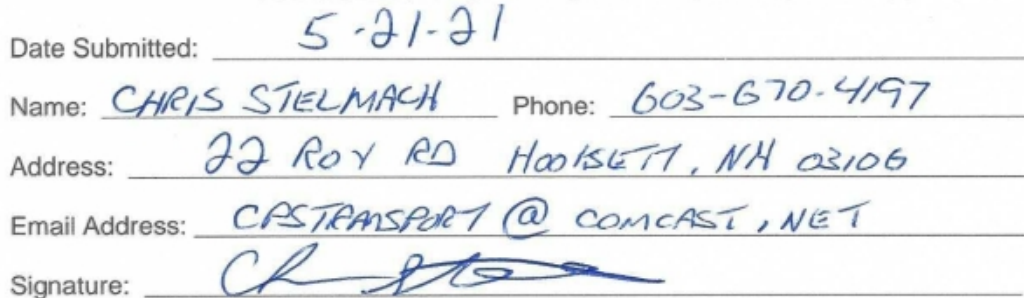 Date Submitted: 5-21-21
Name: CHRIS STELMACH Phone: 603-670-4197
Address: 22 ROY RD HOOKSETT, NH 03106
Email Address: CPSTRANSPORT @ COMCAST, NET
Signature: